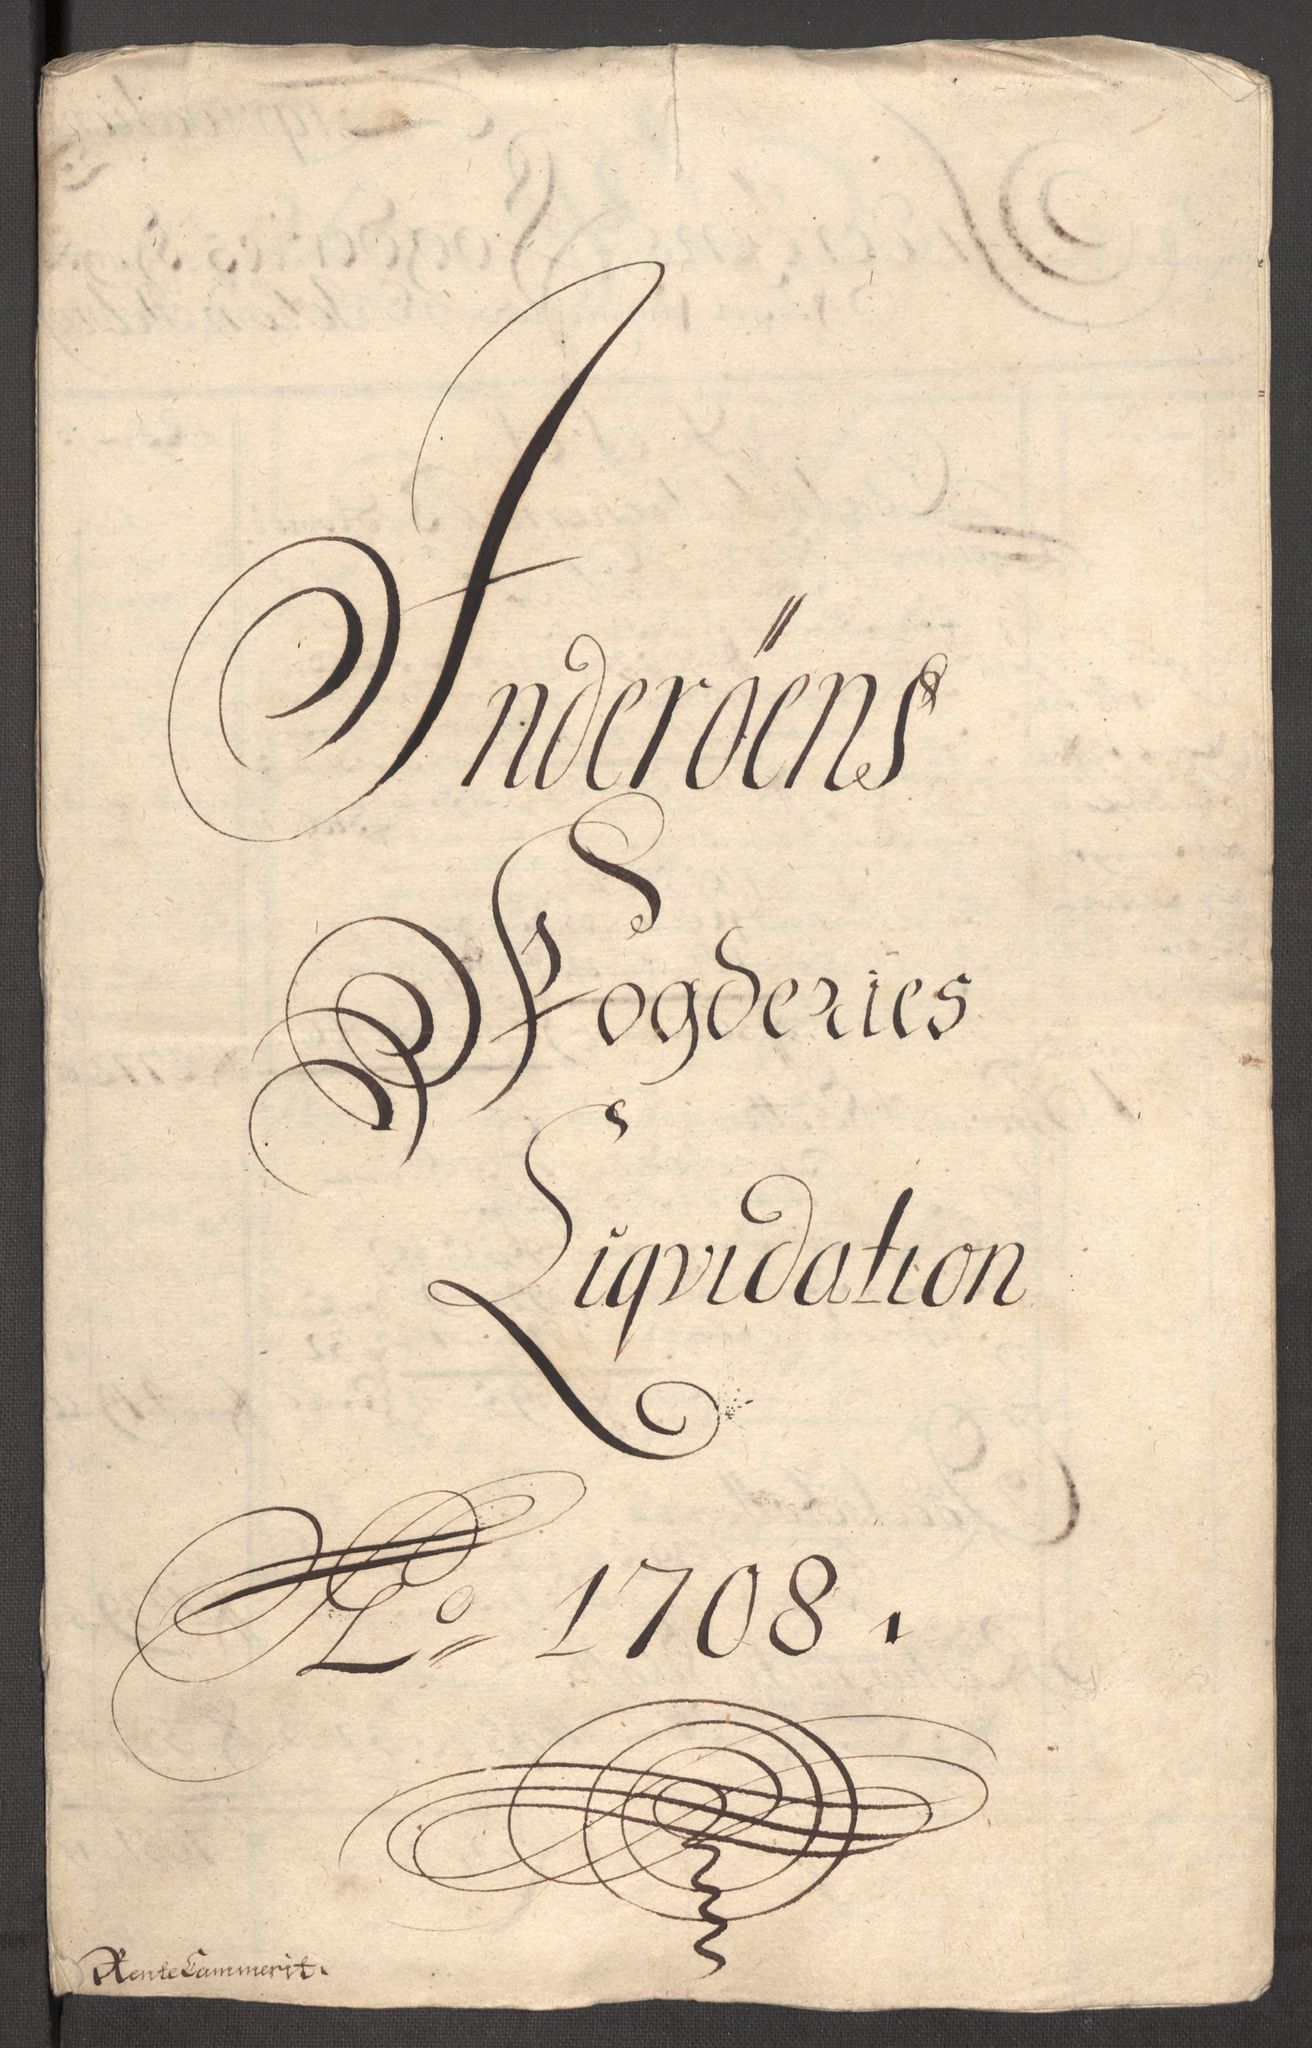 Inderöens
Fogderies
Liqvidation
Ao 1708.
RenteCammerit.